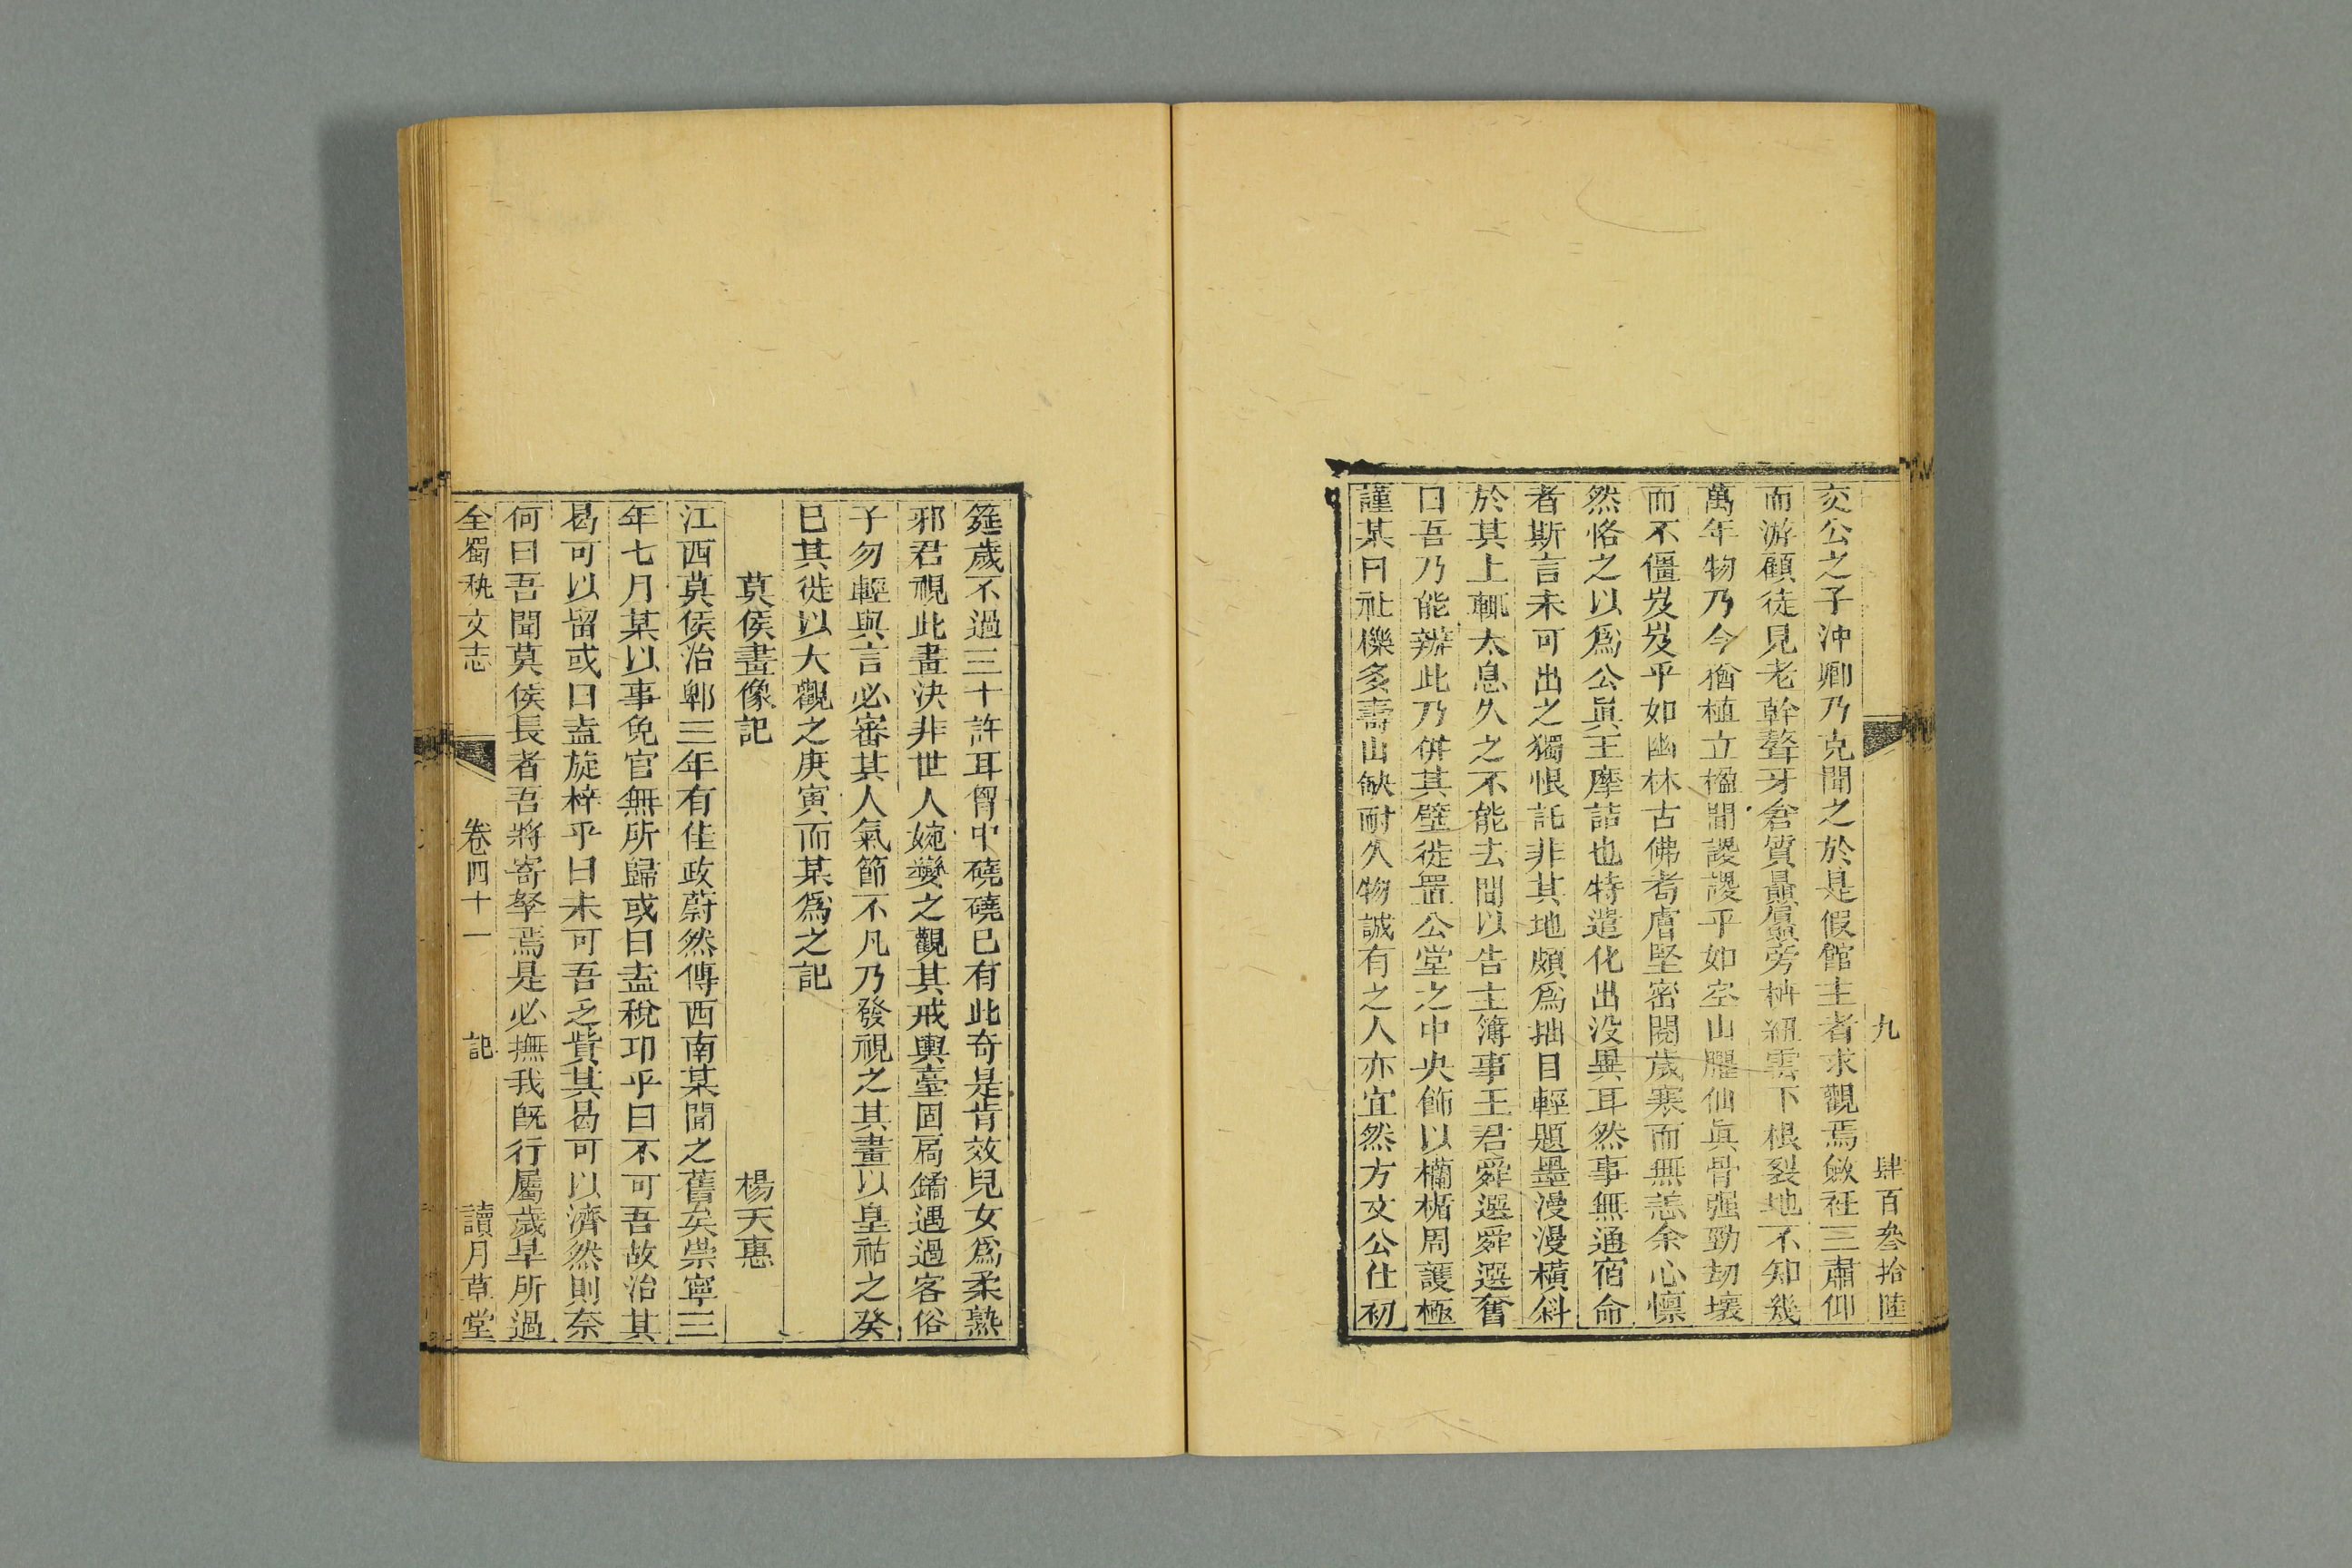 九 肆百叁拾陸
交公之子沖卿乃克聞之於是假館主者求觀焉斂衽三肅仰
而游顧徒見老幹聱牙倉質贔屭旁枿紐雲下根裂地不知幾
萬年物乃今猶植立楹間謖謖乎如空山臞仙眞骨强勁劫壞
而不僵岌岌乎如幽林古佛耆膚堅密閱歲寒而無恙余心懍
然恪之以爲公眞王摩詰也特遣化出没異耳然事無通宿命
者斯言未可出之獨恨託非其地頗爲拙目輕題墨漫漫橫斜
於其上輒太息久之不能去間以告主簿事王君舜選舜選奮
曰吾乃能辦此乃併其壁徙置公堂之中央飾以欄楯周護極
謹某曰社櫟多壽山缺耐久物誠有之人亦宜然方文公仕初
筵歲不過三十許耳胷中磽磽已有此奇是肯效兒女爲柔熟
邪君視此畫決非世人婉孌之觀其戒輿臺固扃鐍遇過客俗
子勿輕與言必審其人氣節不凡乃發視之其畫以皇祐之癸
巳其徙以大觀之庚寅而某爲之記
莫侯畫像記 楊天惠
江西莫侯治郫三年有佳政蔚然傳西南某聞之舊矣崇寧三
年七月某以事免官無所歸或曰盍稅邛乎曰不可吾故治其
曷可以留或曰盍旋梓乎曰未可吾乏貲其曷可以濟然則奈
何曰吾聞莫侯長者吾將寄孥焉是必撫我旣行屬歲旱所過
全蜀秇文志 卷四十一 記 讀月草堂